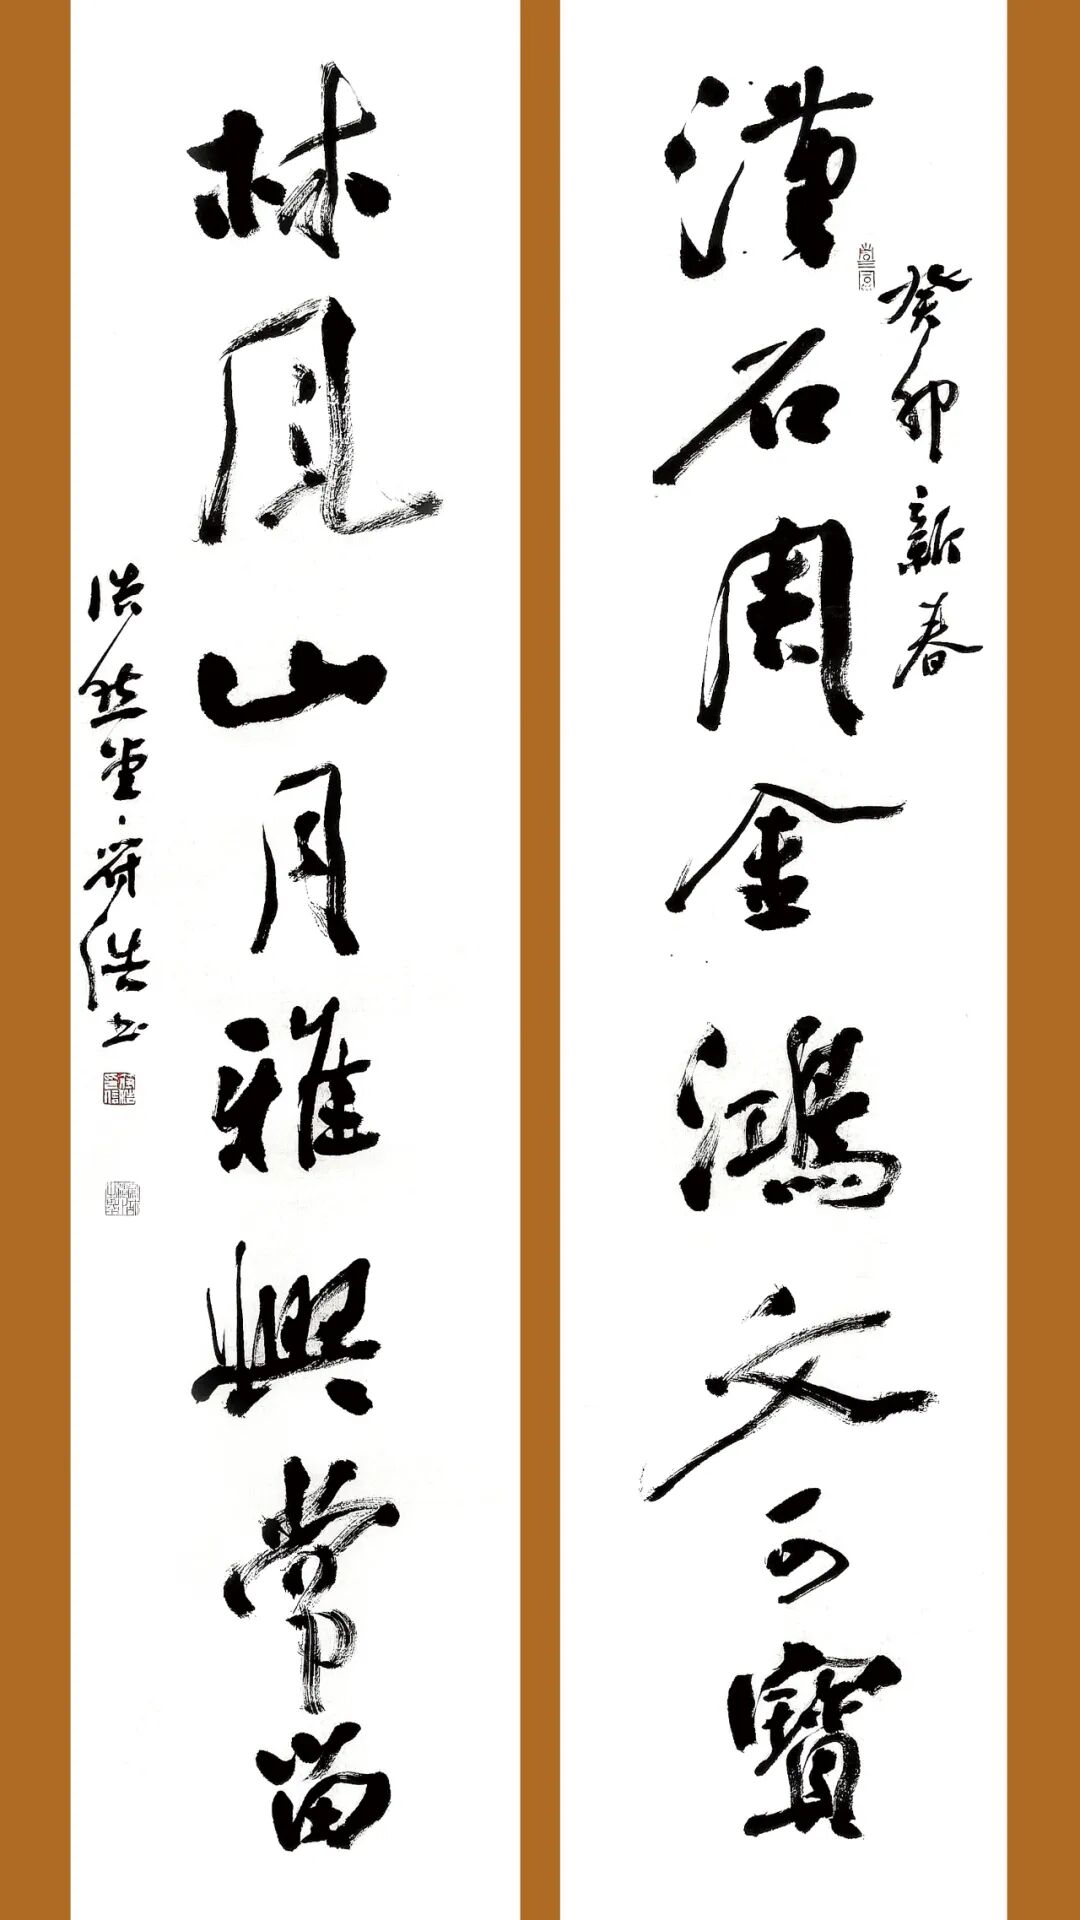 漢石周金鴻文可寶
癸卯新春
林風山月雅興常留
浩然堂符浩書